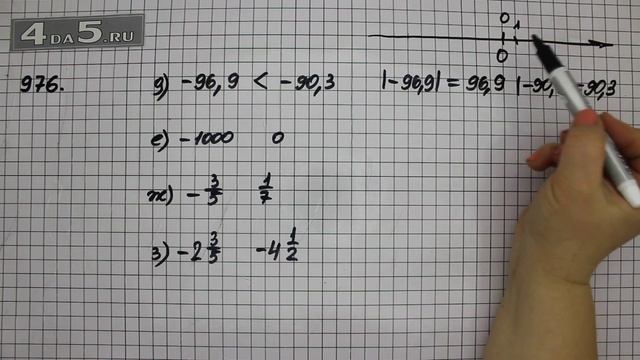 4DA5.RU
0 1
0
976. g) -96,9 < -90,3 |-96,9| = 96,9 |-90, -90,3
e) -1000 0
ж) -3/5 1/7
з) -2 3/5 -4 1/2